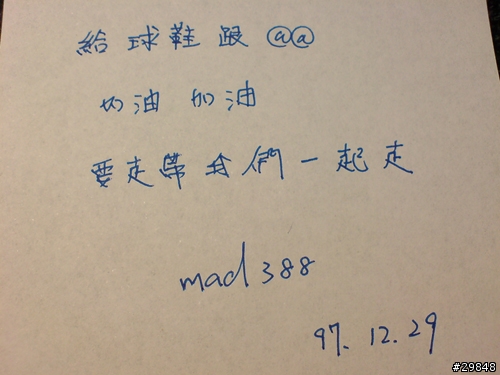 給球鞋跟@@
奶油 加油
要走帶我們一起走
mad388
97.12.29
#29848